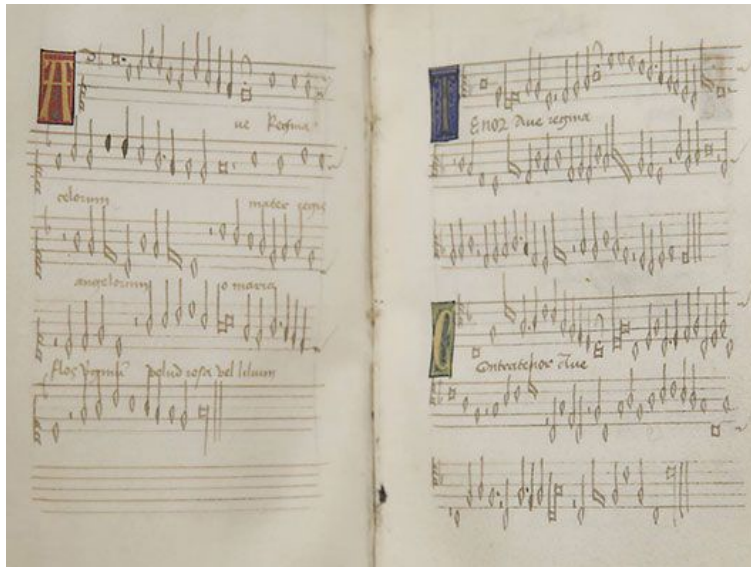 A
ue Regina
celorum mater regis
angelorum o maria
flos velud rosa vel lilium
T
Enor Aue regina
C
Ontratenor Aue